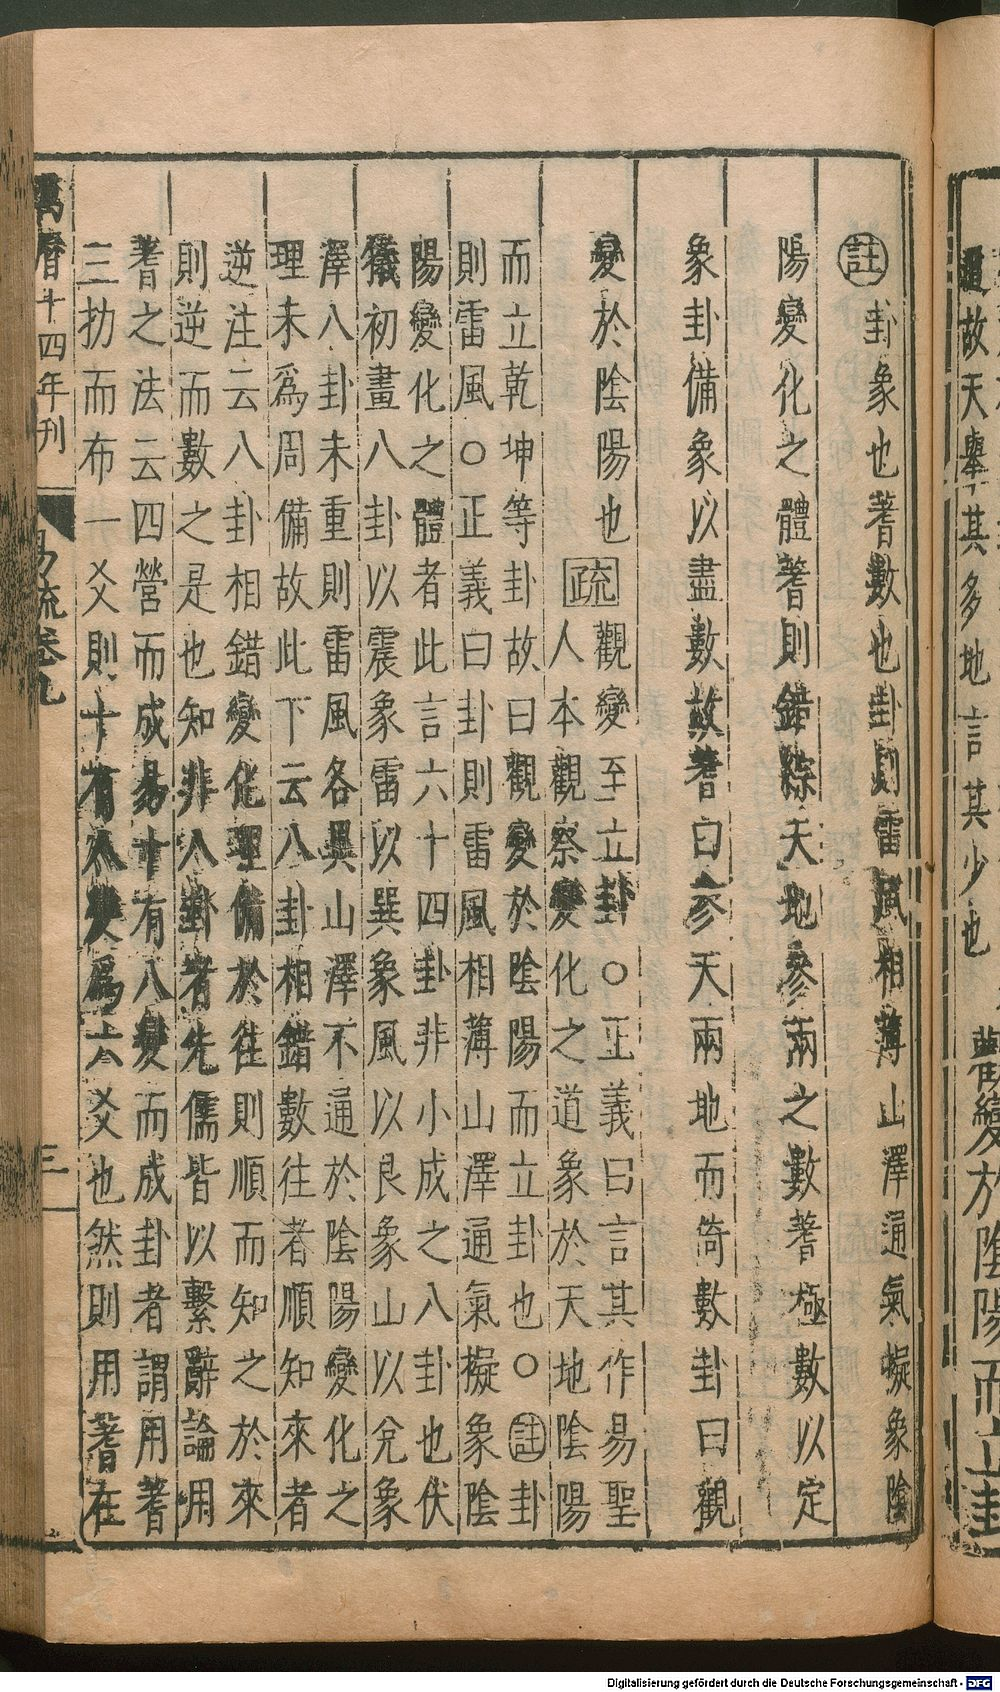 遍故天舉其多地言其少也
觀變於陰陽而立卦
註 卦象也蓍數也卦則雷風相薄山澤通氣擬象陰
陽變化之體蓍則錯綜天地參兩之數蓍極數以定
象卦備象以盡數故蓍曰參天兩地而倚數卦曰觀
變於陰陽也 疏 觀變至立卦○正義曰言其作易聖
人本觀察變化之道象於天地陰陽
而立乾坤等卦故曰觀變於陰陽而立卦也○註卦
則雷風○正義曰卦則雷風相薄山澤通氣擬象陰
陽變化之體者此言六十四卦非小成之八卦也伏
犧初畫八卦以震象雷以巽象風以艮象山以兌象
澤八卦未重則雷風各異山澤不通於陰陽變化之
理未爲周備故此下云八卦相錯數往者順知來者
逆注云八卦相錯變化理備於往則順而知之於來
則逆而數之是也知非八卦者先儒皆以繫辭論用
蓍之法云四營而成易十有八變而成卦者謂用蓍
三扐而布一爻則十有八變爲六爻也然則用蓍在
萬曆十四年刊 易疏卷九 三
Digitalisierung gefördert durch die Deutsche Forschungsgemeinschaft - DFG